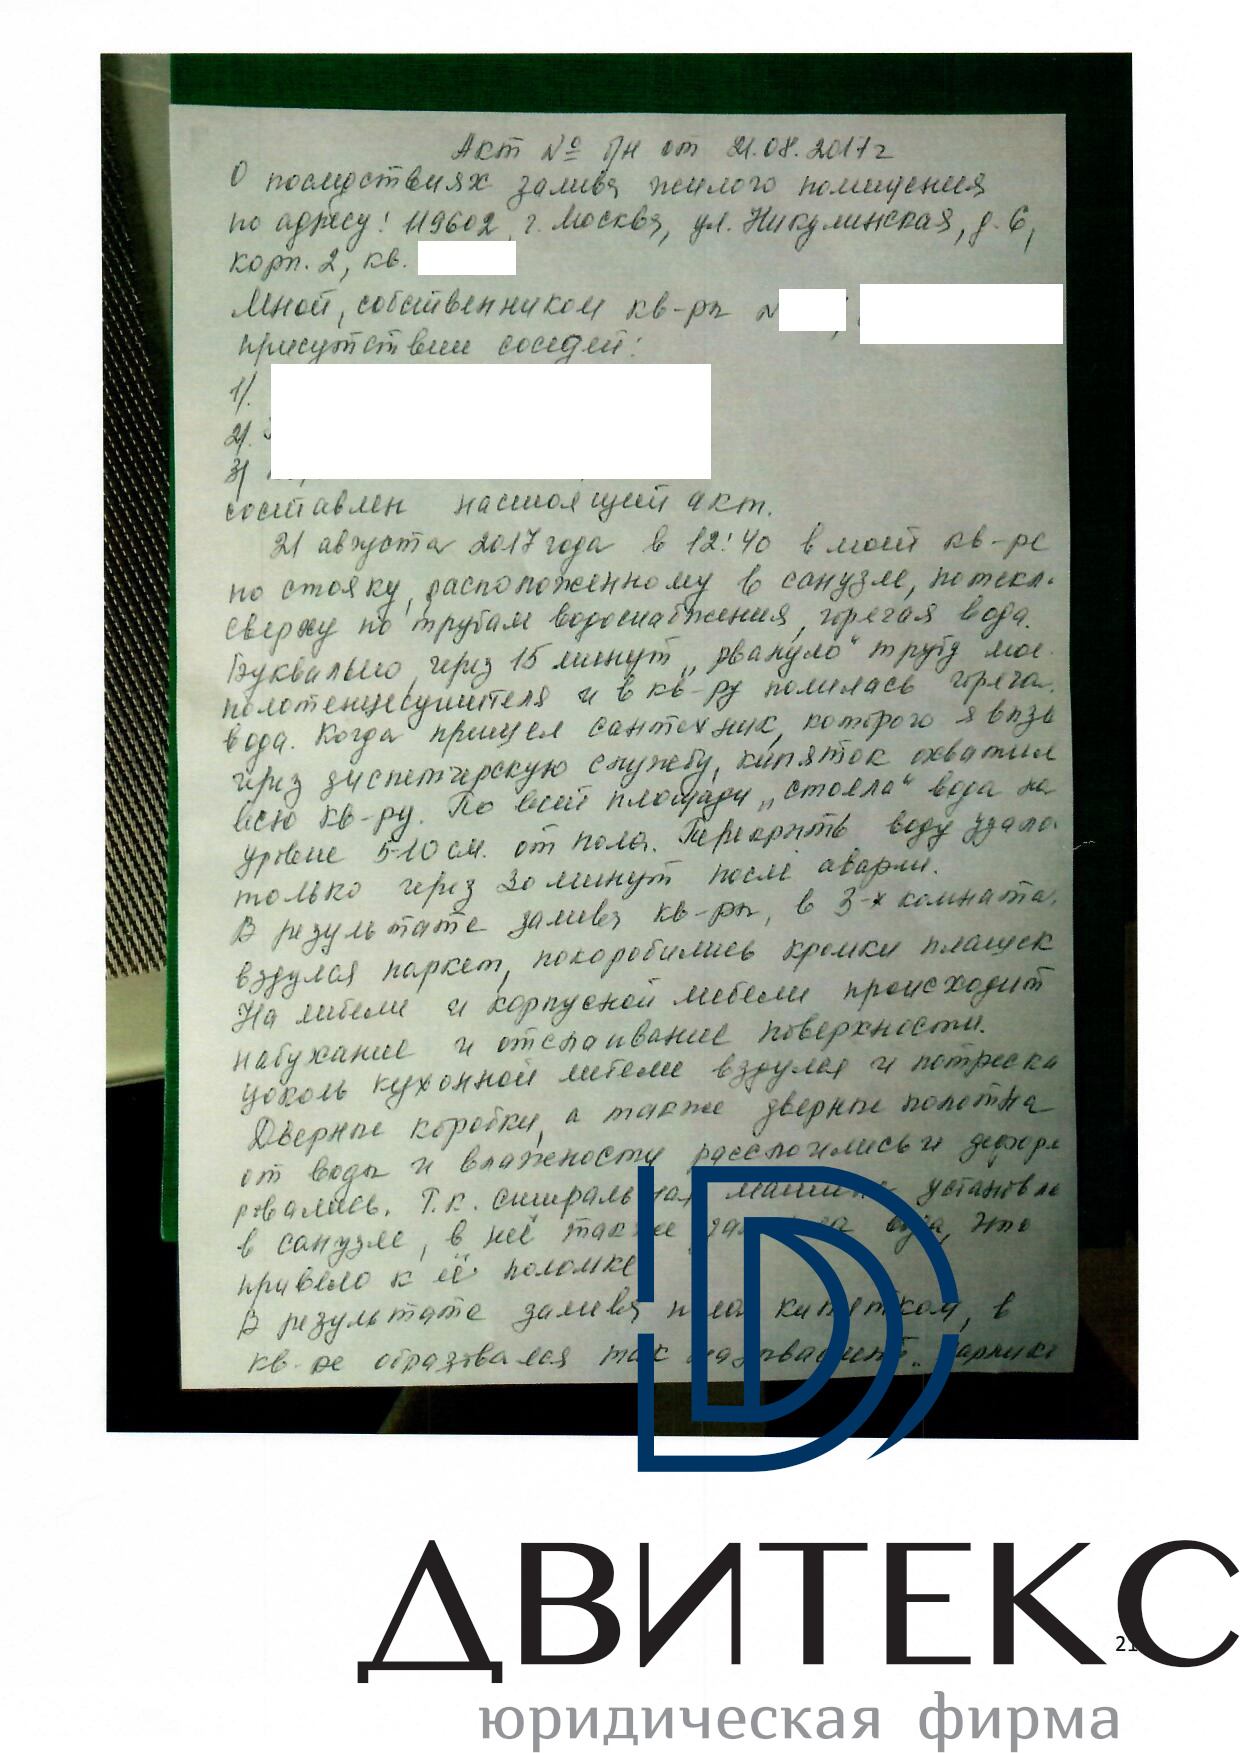 Акт № б/н от 21.08.2017г
О последствиях залива жилого помещения
по адресу: 119602, г. Москва, ул. Никулинская, д. 6,
корп. 2, кв.
Мной, собственником кв-ры
присутствии соседей:
1).
2).
3)
составлен настоящий акт.
21 августа 2017 года в 12:40 в моей кв-ре
по стояку, расположенному в санузле, потекл
сверху по трубам водоснабжения, горячая вода.
Буквально, через 15 минут „рвануло“ трубу мое
полотенцесушителя и в кв-ру полилась горяча
вода. Когда пришел сантехник, которого я вызв
через диспетчерскую службу, кипяток охватил
всю кв-ру. По всей площади „стояла“ вода на
уровне 5-10 см. от пола. Перекрыть воду удало
только через 30 минут после аварии.
В результате залива кв-ры, в 3-х комната
вздулся паркет, покоробились кромки плашек
На мебели и корпусной мебели происходит
набухание и отслаивание поверхности.
Цоколь кухонной мебели вздулся и потреска
Дверные коробки, а также дверные полотна
от воды и влажности расслоились и деформ
ровались. Т.к. стиральная машина установле
в санузле, в неё также вода, это
привело к её поломке
В результате залива кипятком, в
кв-ре образовался так называемый „парнико
21
ДВИТЕКС
юридическая фирма